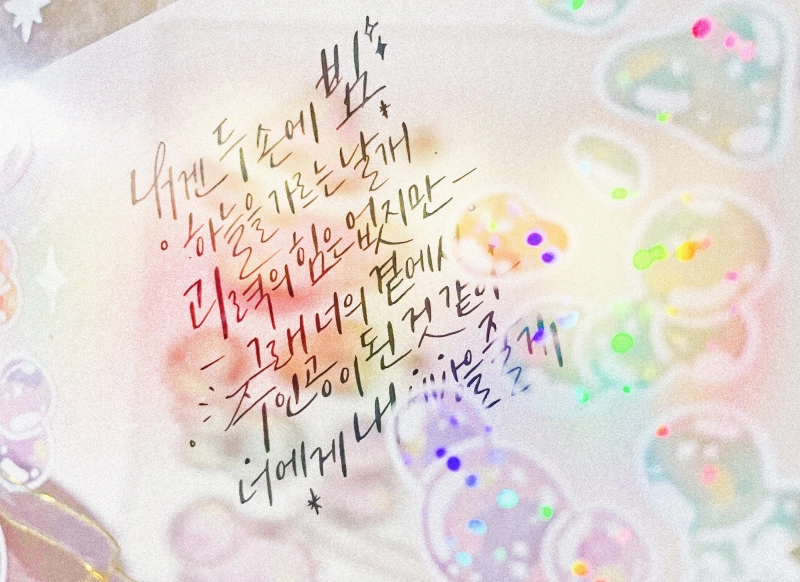 내겐 두 손에 빔
하늘을 가르는 날개
괴력의 힘은 없지만
그래 너의 곁에서
주인공이 된 것 같아
너에게 내 줄게